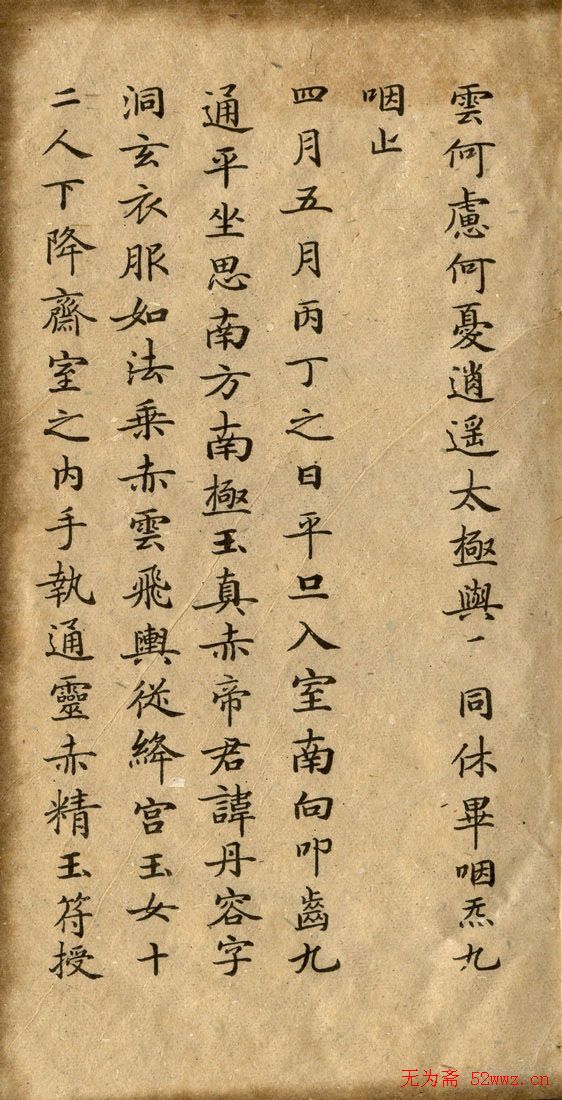 雲何慮何憂逍遥太極與同休畢咽炁九
咽止
四月五月丙丁之日平旦入室南向叩齒九
通平坐思南方南極玉真赤帝君諱丹容字
洞玄衣服如法乗赤雲飛輿従絳宫玉女十
二人下降齋室之内手執通靈赤精玉符授
无为斋 52wwz.cn